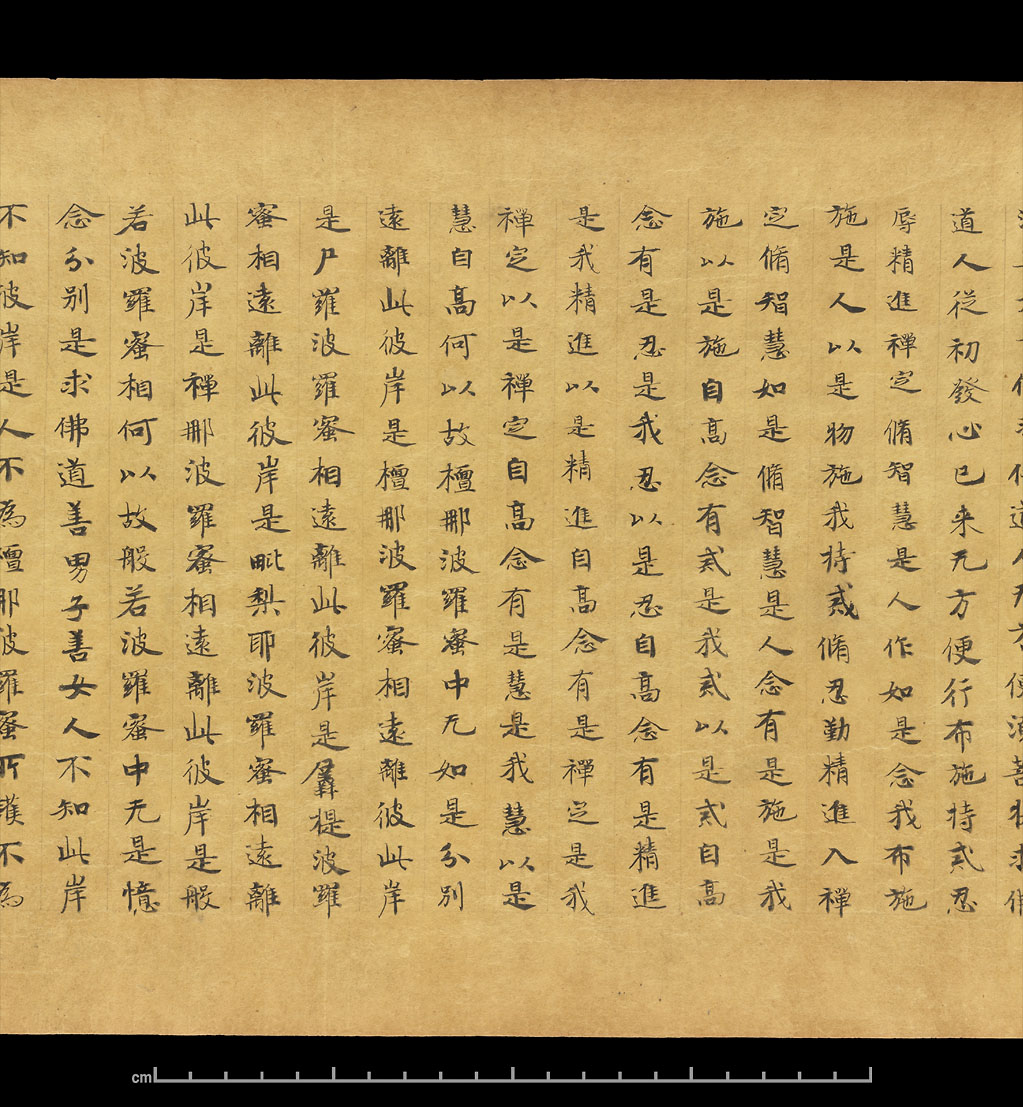 道人无方便須菩提求佛
道人從初發心已来无方便行布施持戒忍
辱精進禪定脩智慧是人作如是念我布施
施是人以是物施我持戒脩忍勤精進入禪
定脩智慧如是脩智慧是人念有是施是我
施以是施自高念有戒是我戒以是戒自高
念有是忍是我忍以是忍自高念有是精進
是我精進以是精進自高念有是禪定是我
禪定以是禪定自高念有是慧是我慧以是
慧自高何以故檀那波羅蜜中无如是分別
遠離此彼岸是檀那波羅蜜相遠離彼此岸
是尸羅波羅蜜相遠離此彼岸是羼提波羅
蜜相遠離此彼岸是毗梨耶波羅蜜相遠離
此彼岸是禪那波羅蜜相遠離此彼岸是般
若波羅蜜相何以故般若波羅蜜中无是憶
念分別是求佛道善男子善女人不知此岸
不知彼岸是人不為檀那波羅蜜所護不為
cm